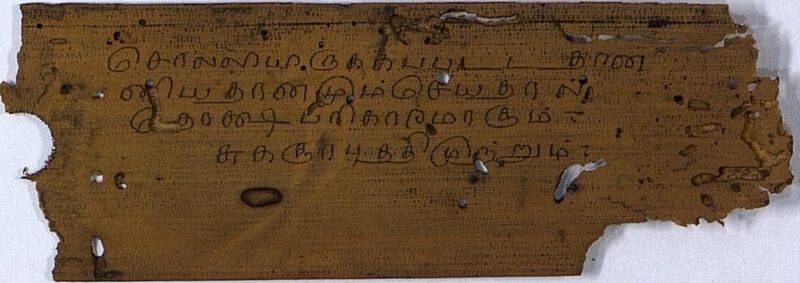 சொலலியிருககபபடட தான
னியதானமும்செயதால்
தோக்ஷபரிகாரமாகும்-
சுகஞாபுததிமுற்றும்-